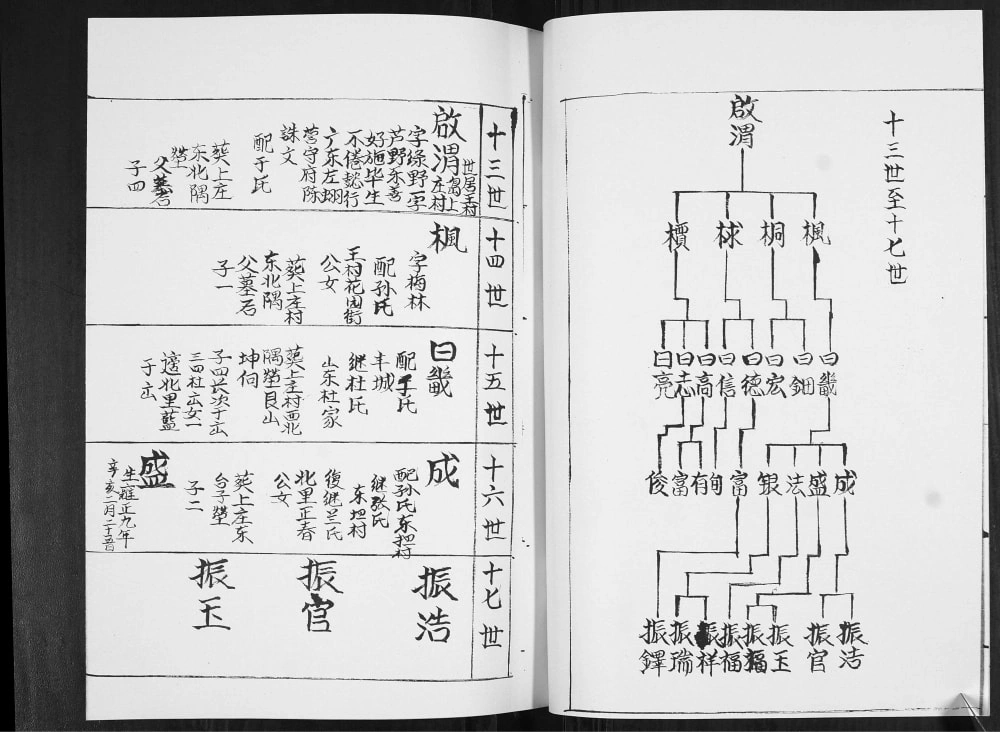 十三世至十七世
啟渭
楓
桐
梂
檟
曰畿
曰鈿
曰宏
曰德
曰信
曰高
曰志
曰亮
成
盛
法
銀
富
有
富
俊
振浩
振官
振玉
振福
振福
振祥
振瑞
振鐸
十三世
啟渭
世居王村
島上庄村
字绿野一字
芦野东善
好施毕生
不倦懿行
广东左翊
营守府陈
誅文
配于氏
葬上庄
东北隅
塋
父墓右
子四
十四世
楓
字梅林
配孙氏
王村花园街
公女
葬上庄村
东北隅
父墓右
子一
十五世
曰畿
配于氏
丰城
继杜氏
山东杜家
葬上庄村西北
隅塋艮山
坤向
子四长次于出
三四杜出女一
適北里藍
于出
十六世
成
配孙氏东担村
继张氏
东坦村
復继兰氏
北里正春
公女
葬上庄东
台子塋
子二
盛
生雍正九年
辛亥二月二十日
十七世
振浩
振官
振玉